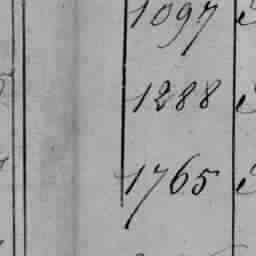 1097
1288
1765